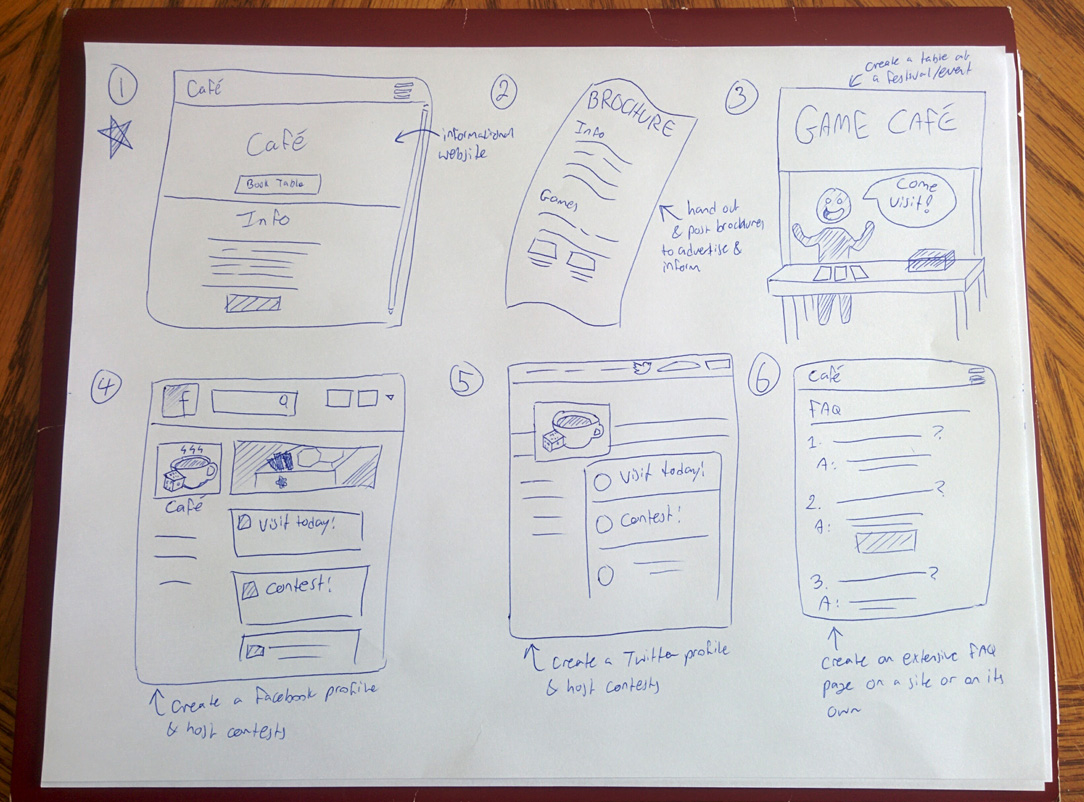 1
Café
Café
Book Table
Info
informational
website
2
BROCHURE
Info
Games
hand out
& post brochures
to advertise &
inform
3
create a table at
a festival/event
GAME CAFÉ
Come
visit!
4
f
Café
visit today!
contest!
create a Facebook profile
& host contests
5
visit today!
contest!
create a Twitter profile
& host contests
6
Café
FAQ
1. ?
A:
2. ?
A:
3. ?
A:
create an extensive FAQ
page on a site or on its
own